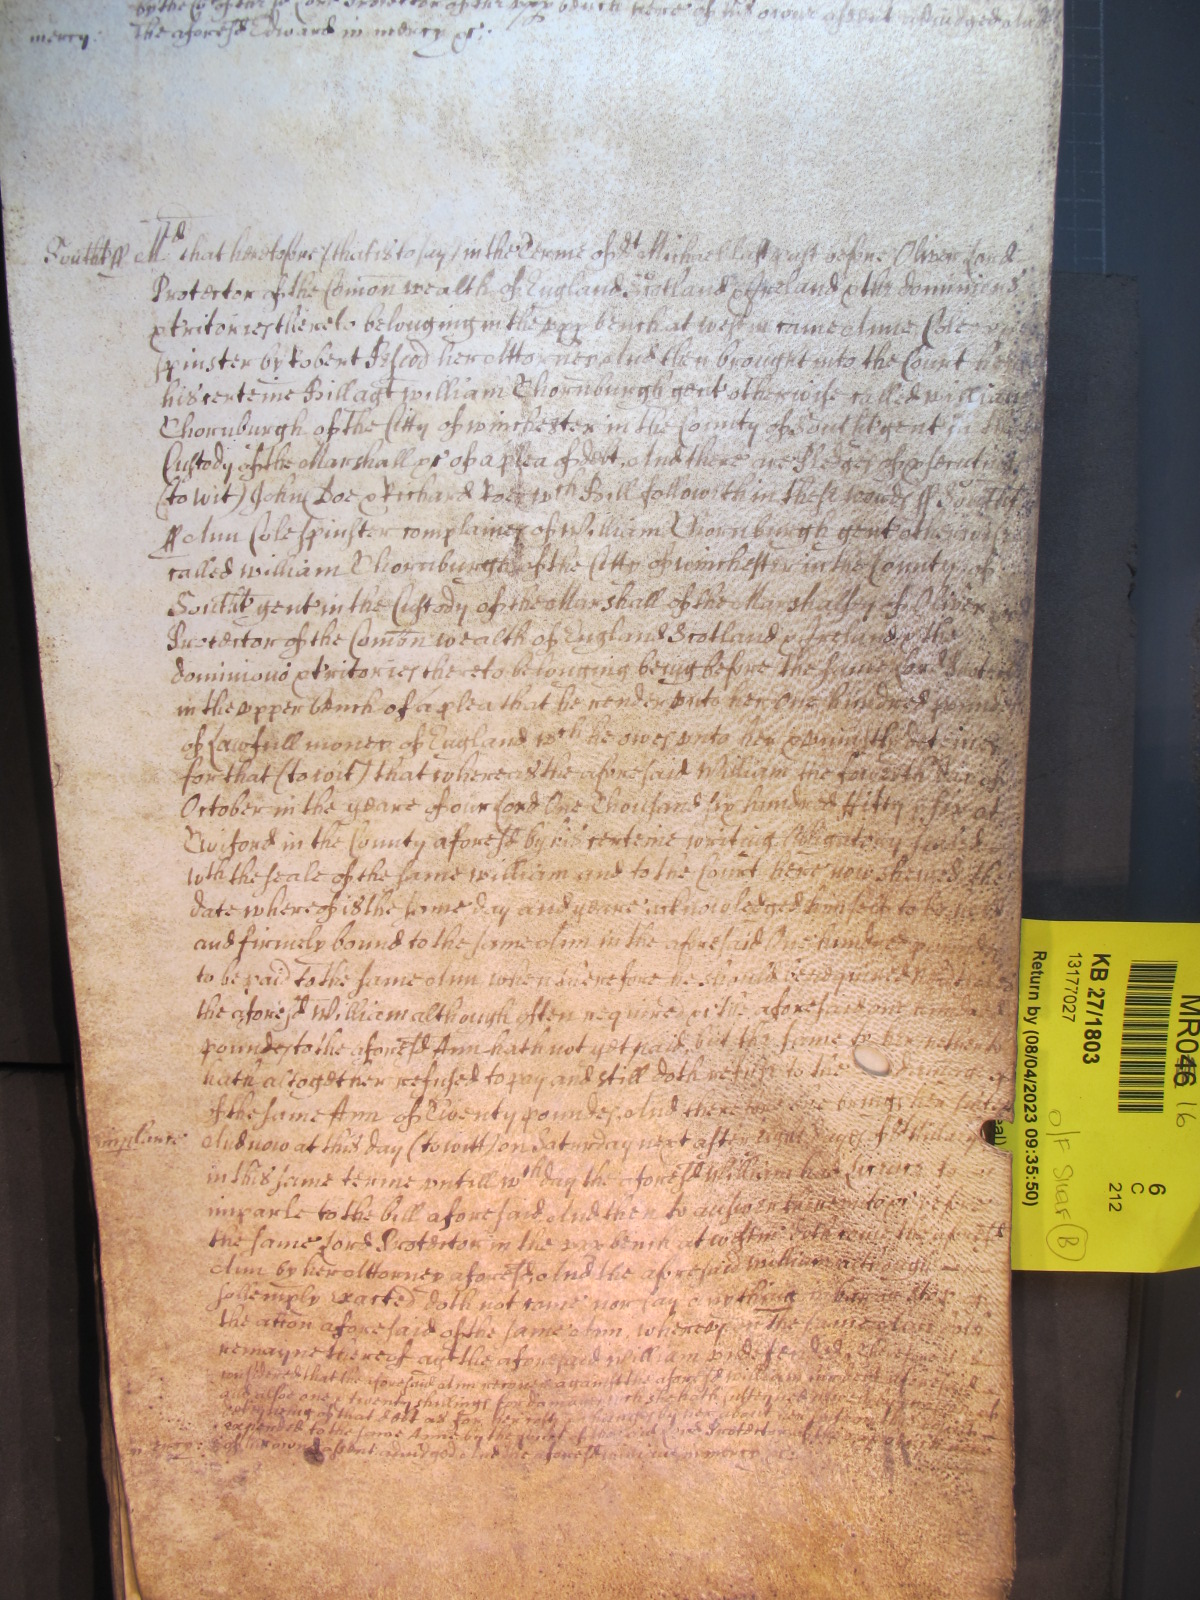 by the Court of our said Lord Protector of the upp bench here of his owne assent adiudged And
mercy. The aforesd Edward in mercy &c.
Southt ss Md that heretofore (that is to say) in the Terme of St Michael last past before Oliver Lord
Protector of the Comon wealth of England Scotland & Ireland & the dominions
& tritories thereto belonging in the upp bench at westm came Anne Cole
spinster by Robert her Attorney And then brought into the Court here
his certeine Bill agt william Thornburgh gent otherwise called william
Thornburgh of the Citty of winchester in the County of Southt gent in the
Custody of the Marshall &c of a plea of debt. And there are Pledges of psecuting
(to wit) John Doe & Richard Roe wch Bill followeth in these words ss Southt
ss Ann Cole spinster complaines of William Thornburgh gent otherwise
called william Thornburgh of the Citty of winchester in the County of
Southt gent in the Custody of the Marshall of the Marshalsey of Oliver Lord
Protector of the Comon wealth of England Scotland & Ireland & the
dominions & tritories thereto belonging being before the same Lord Protector
in the upper bench of a plea that he render unto her One hundred pounds
of Lawfull money of England wch he owes unto her & uniustly deteines
for that (to wit) that whereas the aforesaid William the fowerth day of
October in the yeare of our Lord One Thousand six hundred fifty & six at
Twiford in the County aforesd by his certeine writing Obligatory sealed
wth the seale of the same william and to the Court here now shewed the
date whereof is the same day and yeare acknowledged himself to be held
and firmely bound to the same Ann in the aforesaid One hundred pounds
to be paid to the same Ann when therefore he should be required
the aforesd William although often required &c the aforesaid one hundred
pounds to the aforesd Ann hath not yet paid, but the same to her hitherto
hath altogether refused to pay and still doth refuse to the damage
of the same Ann of Twenty pounds. And therefore she brings her suite
imparlance And now at this day (to witt) on Saturday next after eight dayes of St Hillary
in this same terme untill wch day the aforesd William had Licence to
imparle to the bill aforesaid And then to answer thereunto &c before
the same Lord Protector in the upp bench at westm doth come the aforesd
Ann by her Attorney aforesd And the aforesaid william although
sollemply exacted doth not come nor say anything in bar or stop of
the action aforesaid of the same Ann, whereupon the same Ann doth
remayne thereof agt the aforesaid william undefended. Therefore it is
considered that the aforesaid Ann recover against the aforesd William her debt aforesaid
and alsoe one & twenty shillings for damages wch she hath susteyned
deteyning of that debt as for her costs & charges by her about her suite in this behalf
expended to the same Anne by the Court of the said Lord Protector of the upp bench here
in mercy: of her owne assent adiudged And the aforesd William in mercy &c.
MR046 16
KB 27/1803
13177027
Return by (08/04/2023 09:35:50)
6
C
212
B